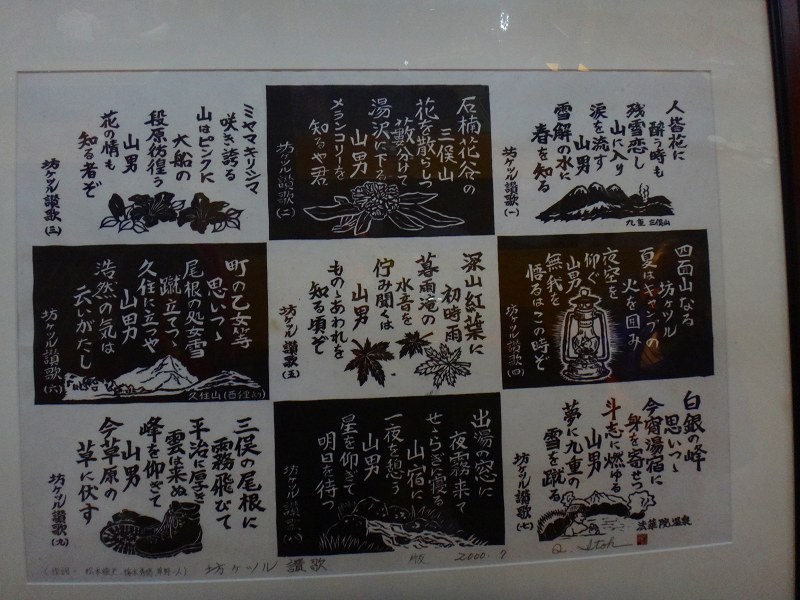 人皆花に
酔う時も
残雪恋し
山に入り
涙を流す
山男
雪解の水に
春を知る
坊ケツル讃歌(一)
九重 三俣山
石楠花谷の
三俣山
花を散らしつ
分けて
湯沢に下る
山男
メランコリーを
知るや君
坊ケツル讃歌(二)
ミヤマキリシマ
咲き誇る
山はピンクに
大船の
段原彷徨う
山男
花の情も
知る者ぞ
坊ケツル讃歌(三)
四面山なる
坊ケツル
夏はキャンプの
火を囲み
夜空を
仰ぐ
山男
無我を
悟るはこの時ぞ
坊ケツル讃歌(四)
深山紅葉に
初時雨
暮雨滝の
水音を
佇み聞くは
山男
ものゝあわれを
知る頃ぞ
坊ケツル讃歌(五)
町の乙女等
思いつゝ
尾根の処女雪
蹴立てつゝ
久住に立つや
山男
浩然の気は
云いがたし
坊ケツル讃歌(六)
久住山
白銀の峰
思いつゝ
今宵湯宿に
身を寄せつ
斗志に燃ゆる
山男
夢に九重の
雪を蹴る
坊ケツル讃歌(七)
法華院温泉
出湯の窓に
夜霧来て
せゝらぎに寝る
山宿に
一夜を憩う
山男
星を仰ぎて
明日を待つ
坊ケツル讃歌(八)
三俣の尾根に
霧飛びて
平治に厚き
雲は来ぬ
峰を仰ぎて
山男
今草原の
草に伏す
坊ケツル讃歌(九)
坊ケツル 讃歌
版 2000.9
Q. Itoh